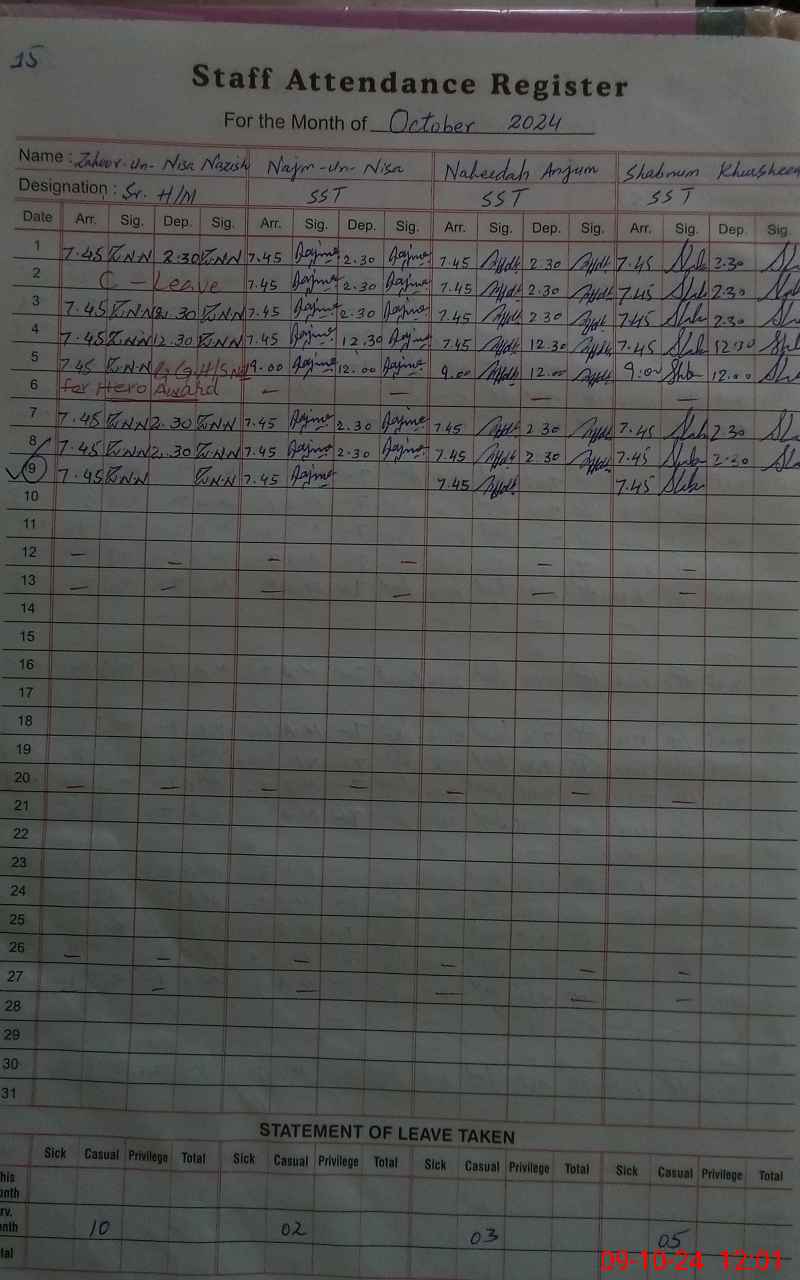 15
Staff Attendance Register
For the Month of October 2024
Name : Zaheer-un-Nisa Nazish Najm-un-Nisa Naheedah Anjum Shabnum Khursheed
Designation : Sr. H/M SST SST SST
Date Arr. Sig. Dep. Sig. Arr. Sig. Dep. Sig. Arr. Sig. Dep. Sig. Arr. Sig. Dep. Sig.
1 7.45 Z.NN 2.30 Z.NN 7.45 Najma 2.30 Najma 7.45 2.30 7.45 Shab 2.30 Sha
2 C - Leave 7.45 Najma 2.30 Najma 7.45 2.30 7.45 Shab 2.30 Sha
3 7.45 Z.NN 2.30 Z.NN 7.45 Najma 2.30 Najma 7.45 2.30 7.45 Shab 2.30 Sha
4 7.45 Z.NN 12.30 Z.NN 7.45 Najma 12.30 Najma 7.45 12.30 7.45 Shab 12.30 Sha
5 7.45 Z.NN 9.00 Najma 12.00 Najma 9.00 12.00 9:00 Shab 12.00 Sha
6 for Hero Award — — — —
7 7.45 Z.NN 2.30 Z.NN 7.45 Najma 2.30 Najma 7.45 2.30 7.45 Shab 2.30 Sha
8 7.45 Z.NN 2.30 Z.NN 7.45 Najma 2.30 Najma 7.45 2.30 7.45 Shab 2.30 Sha
9 7.45 Z.NN Z.NN 7.45 Najma 7.45 7.45 Shab
10
11
12 — — — — — —
13 — — — — — —
14
15
16
17
18
19
20 — — — — — — —
21
22
23
24
25
26 — — — — — —
27 — — — — — —
28
29
30
31
STATEMENT OF LEAVE TAKEN
Sick Casual Privilege Total Sick Casual Privilege Total Sick Casual Privilege Total Sick Casual Privilege Total
his
nth
rv.
nth 10 02 03 05
tal
09-10-24 12:01